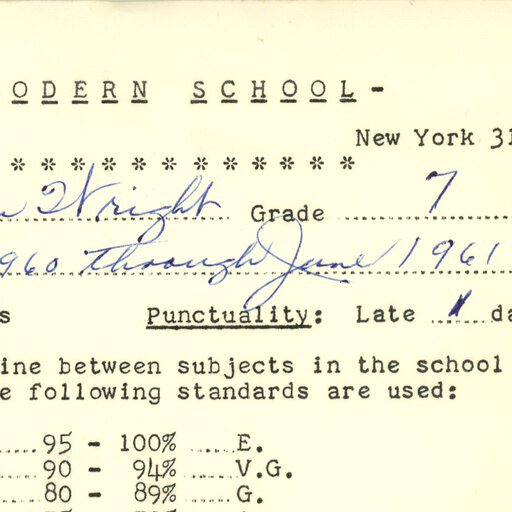 ODERN SCHOOL -
New York 31
* * * * * * * * * * * *
Wright Grade 7
960 through June 1961
s Punctuality: Late 1 da
ine between subjects in the school
e following standards are used:
95 - 100% E.
90 - 94% V.G.
80 - 89% G.